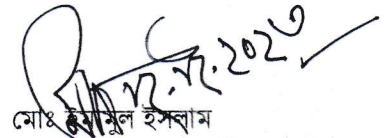 ১২.১২.২০২৩
মোঃ ইমামুল ইসলাম